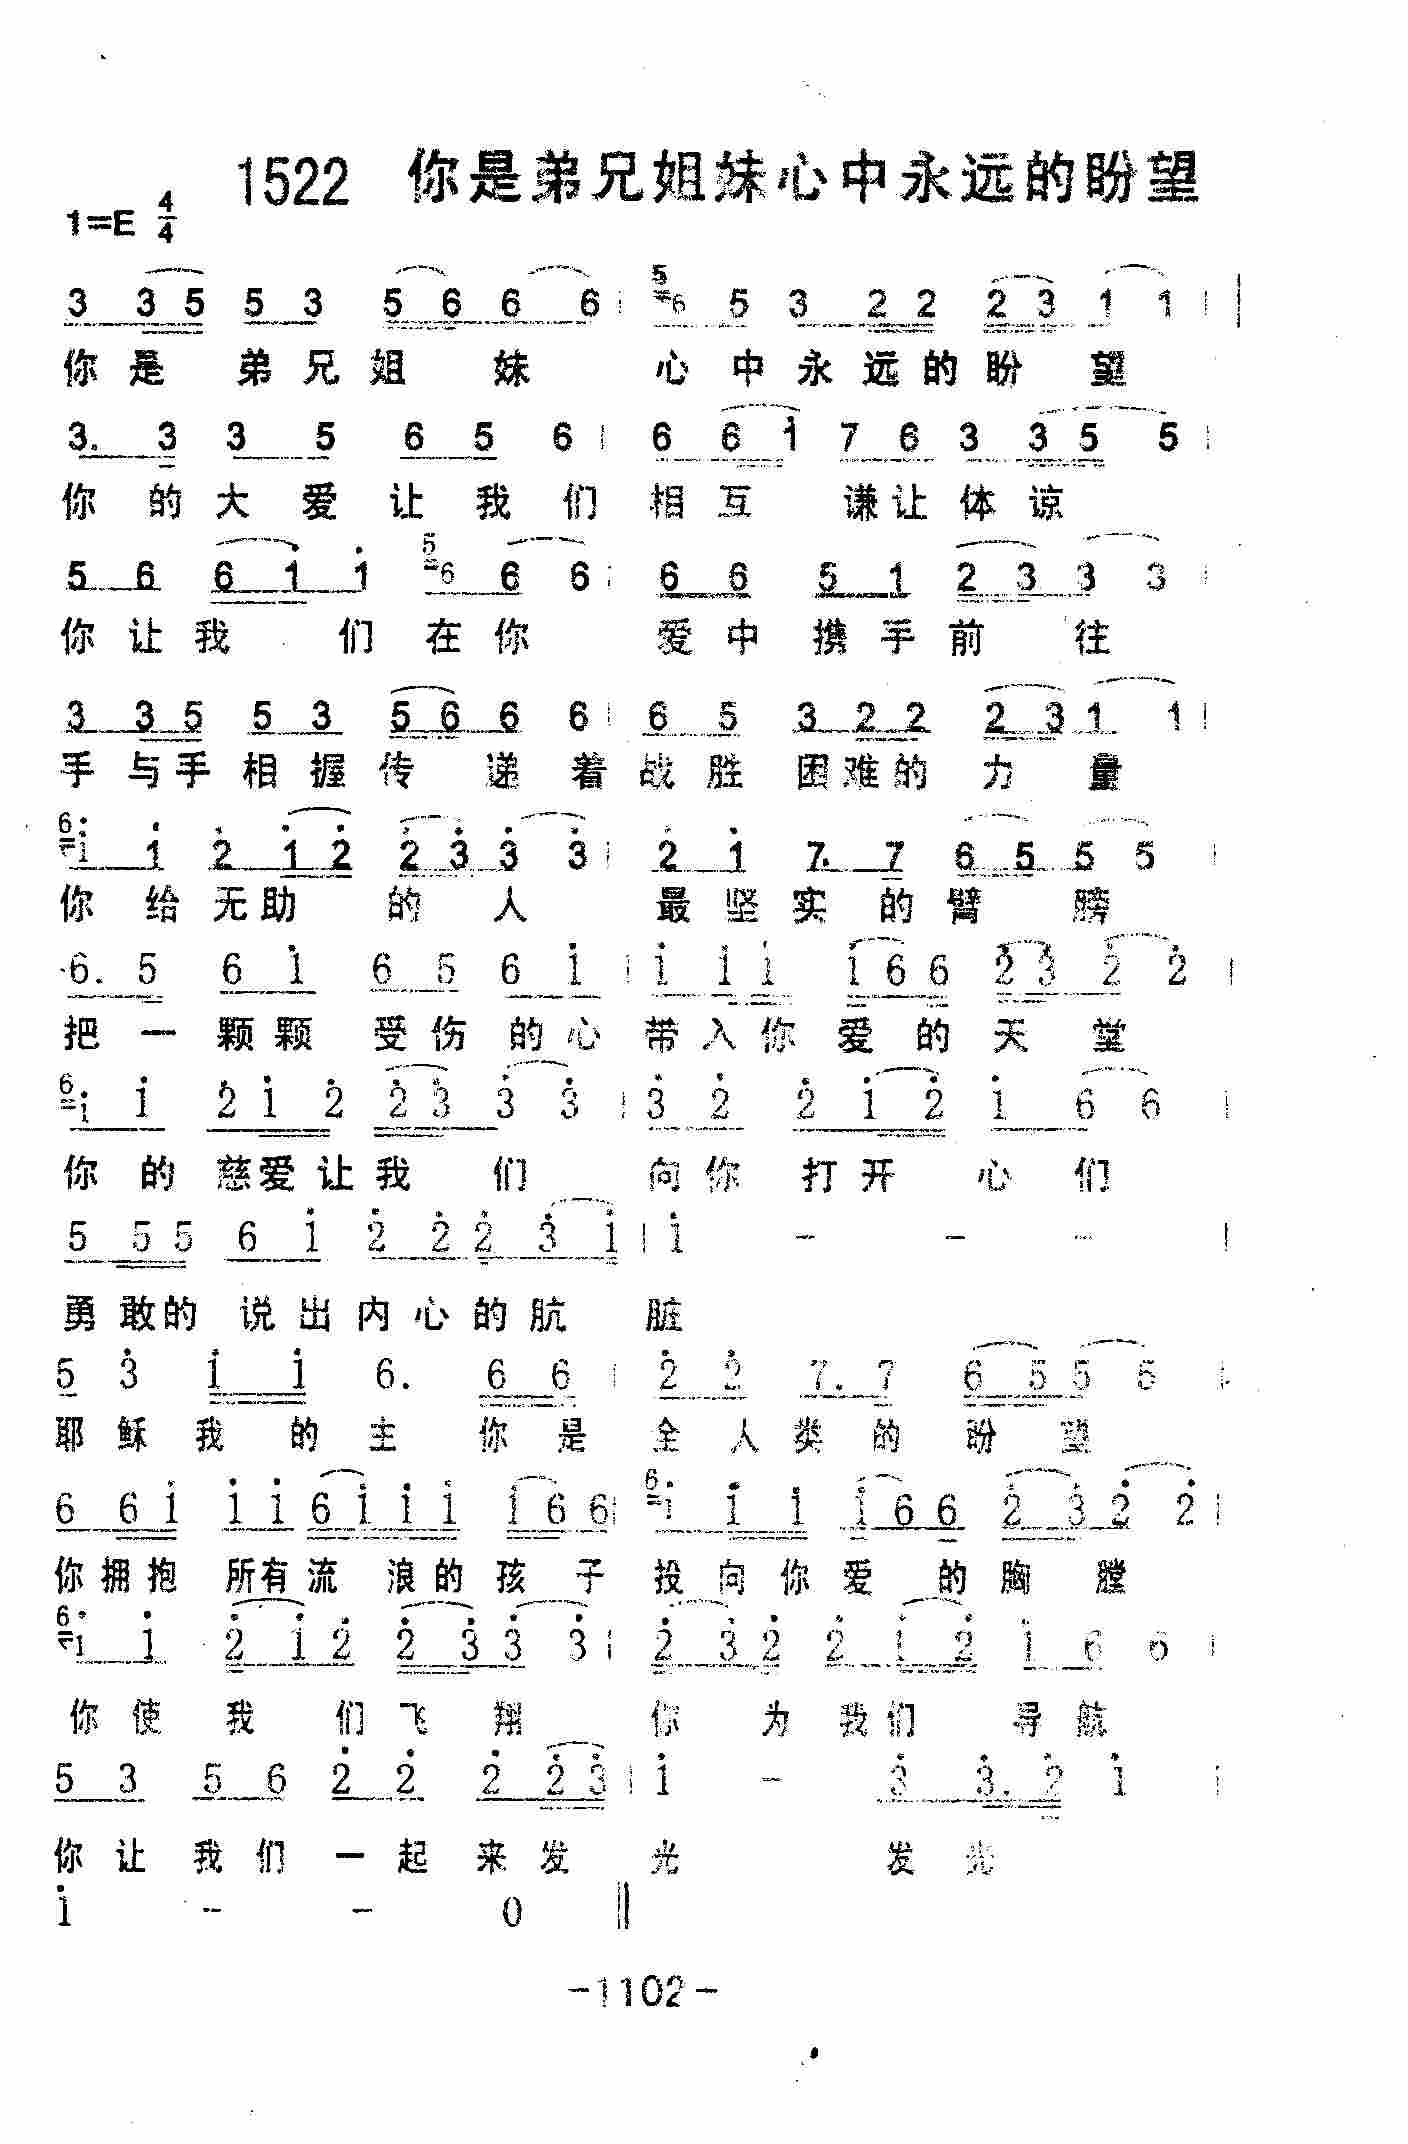 1522 你是弟兄姐妹心中永远的盼望
1=E 4/4
3 3 5 5 3 5 6 6 6 | 5 6 5 3 2 2 2 3 1 1 |
你是 弟兄姐 妹 心 中永远的盼 望
3. 3 3 5 6 5 6 | 6 6 1 7 6 3 3 5 5 |
你 的大 爱 让 我 们 相互 谦让体谅
5 6 6 1 1 5 6 6 6 | 6 6 5 1 2 3 3 3 |
你让我 们 在你 爱中 携手前 往
3 3 5 5 3 5 6 6 6 | 6 5 3 2 2 2 3 1 1 |
手 与手 相握传 递 着战胜 困难的 力 量
6 1 1 2 1 2 2 3 3 3 | 2 1 7. 7 6 5 5 5 |
你 给 无助 的 人 最坚实 的臂 膀
6. 5 6 1 6 5 6 1 | 1 1 1 1 6 6 2 3 2 2 |
把 一 颗颗 受伤 的心 带入你 爱 的 天 堂
6 1 1 2 1 2 2 3 3 3 | 3 2 2 1 2 1 6 6 |
你 的 慈爱让我 们 向你 打开 心 们
5 5 5 6 1 2 2 2 3 1 | 1 - - - |
勇敢的 说出内心的肮 脏
5 3 1 1 6. 6 6 | 2 2 7. 7 6 5 5 5 |
耶稣 我 的 主 你 是 全 人类 的 盼 望
6 6 1 1 1 6 1 1 1 1 6 6 | 6 1 1 1 1 6 6 2 3 2 2 |
你拥抱 所有流 浪的孩 子 投 向 你爱 的胸 膛
6 1 1 2 1 2 2 3 3 3 | 2 3 2 2 1 2 1 6 6 |
你使 我 们飞 翔 你 为 我们 导航
5 3 5 6 2 2 2 2 3 | 1 - 3 3. 2 1 |
你让 我们 一起 来发 光 发 光
1 - - 0 ‖
-1102-